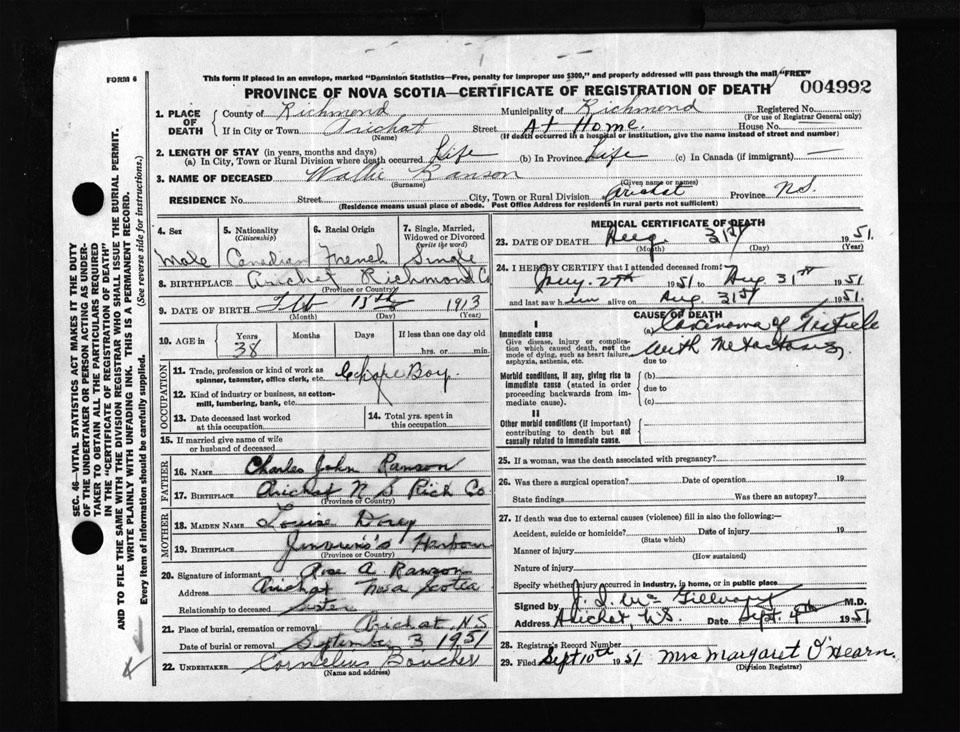 FORM 6
This form if placed in an envelope, marked "Dominion Statistics—Free, penalty for improper use $300," and properly addressed will pass through the mail "FREE"
PROVINCE OF NOVA SCOTIA—CERTIFICATE OF REGISTRATION OF DEATH 004992
SEC. 46—VITAL STATISTICS ACT MAKES IT THE DUTY
OF THE UNDERTAKER OR PERSON ACTING AS UNDER-
TAKER TO OBTAIN ALL THE PARTICULARS REQUIRED
IN THE "CERTIFICATE OF REGISTRATION OF DEATH"
AND TO FILE THE SAME WITH THE DIVISION REGISTRAR WHO SHALL ISSUE THE BURIAL PERMIT.
WRITE PLAINLY WITH UNFADING INK. THIS IS A PERMANENT RECORD.
Every item of information should be carefully supplied. (See reverse side for instructions.)
1. PLACE OF DEATH
County of Richmond Municipality of Richmond Registered No.
(For use of Registrar General only)
If in City or Town Arichat Street At Home. House No.
(Name) (If death occurred in a hospital or institution, give the name instead of street and number)
2. LENGTH OF STAY (in years, months and days)
(a) In City, Town or Rural Division where death occurred Life (b) In Province Life (c) In Canada (if immigrant) —
3. NAME OF DECEASED Wallie Ranson
(Surname) (Given name or names)
RESIDENCE No. Street City, Town or Rural Division Arichat Province N.S.
(Residence means usual place of abode. Post Office Address for residents in rural parts not sufficient)
4. Sex 5. Nationality (Citizenship) 6. Racial Origin 7. Single, Married, Widowed or Divorced (write the word)
Male Canadian French Single
8. BIRTHPLACE Arichat Richmond Co
(Province or Country)
9. DATE OF BIRTH Feb 18th 1913
(Month) (Day) (Year)
10. AGE in Years Months Days If less than one day old
38 hrs. or min.
OCCUPATION
11. Trade, profession or kind of work as
spinner, teamster, office clerk, etc. Boy
12. Kind of industry or business, as cotton-
mill, lumbering, bank, etc.
13. Date deceased last worked
at this occupation
14. Total yrs. spent in
this occupation
15. If married give name of wife
or husband of deceased
FATHER
16. NAME Charles John Ranson
17. BIRTHPLACE Arichat N S Rich Co
(Province or Country)
MOTHER
18. MAIDEN NAME Louise Dorey
19. BIRTHPLACE Harbour
(Province or Country)
20. Signature of informant Rose A. Ranson
Address Arichat Nova Scotia
Relationship to deceased Sister
21. Place of burial, cremation or removal Arichat N.S
Date of burial or removal September 3 1951
22. UNDERTAKER Cornelius Boucher
(Name and address)
MEDICAL CERTIFICATE OF DEATH
23. DATE OF DEATH Aug 31st 1951.
(Month) (Day) (Year)
24. I HEREBY CERTIFY that I attended deceased from:
1951 to Aug 31st 1951
and last saw him alive on Aug. 31st 1951.
CAUSE OF DEATH
I
Immediate cause (a) Carcinoma of Testicle
Give disease, injury or complica-
tion which caused death, not the
mode of dying, such as heart failure,
asphyxia, asthenia, etc.
with Metastasis
due to
Morbid conditions, if any, giving rise to
immediate cause (stated in order
proceeding backwards from im-
mediate cause).
(b)
due to
(c)
II
Other morbid conditions (if important)
contributing to death but not
causally related to immediate cause.
25. If a woman, was the death associated with pregnancy?
26. Was there a surgical operation? Date of operation 19
State findings Was there an autopsy?
27. If death was due to external causes (violence) fill in also the following:—
Accident, suicide or homicide? Date of injury 19
(State which)
Manner of injury
(How sustained)
Nature of injury
Specify whether injury occurred in industry, in home, or in public place
Signed by M.D.
Address Arichat, N.S. Date Sept. 4th 1951
28. Registrar's Record Number
29. Filed Sept 10th 1951 Mrs Margaret O'Hearn.
(Division Registrar)